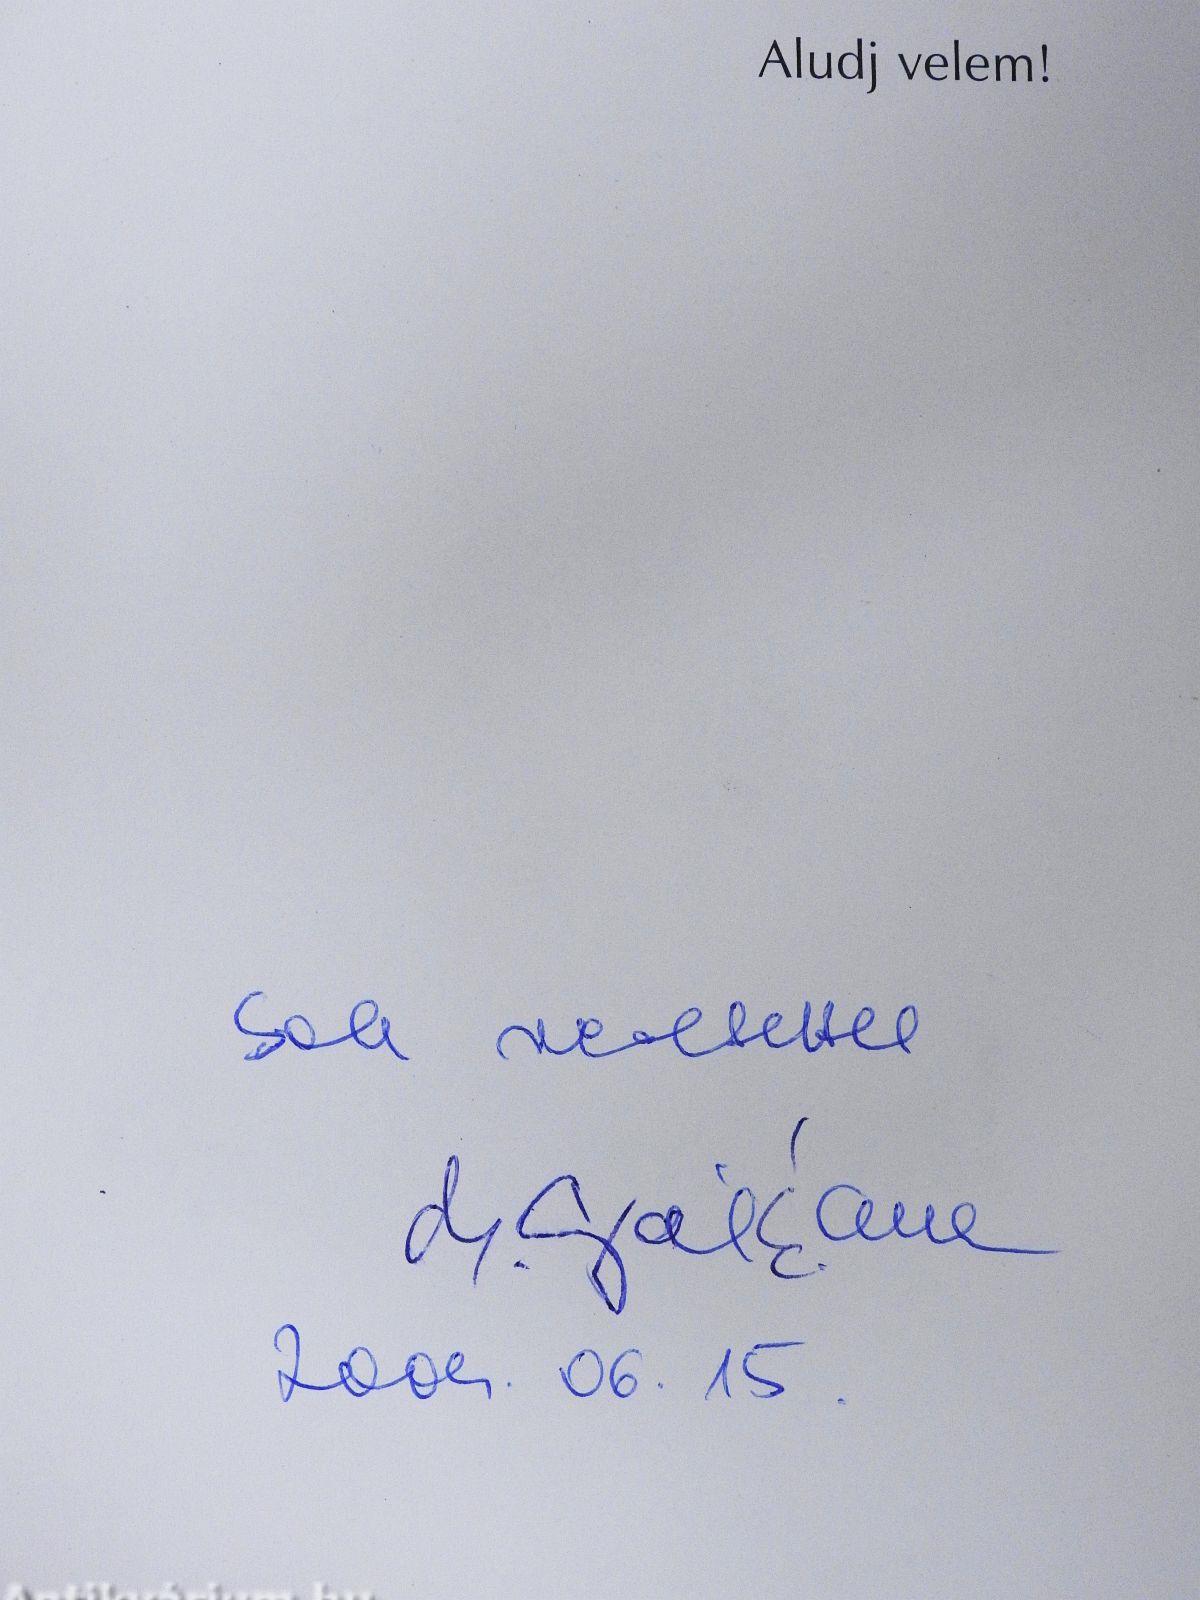 Aludj velem!
Sok szeretettel
dr.
2009. 06. 15.
Antikvárium.hu